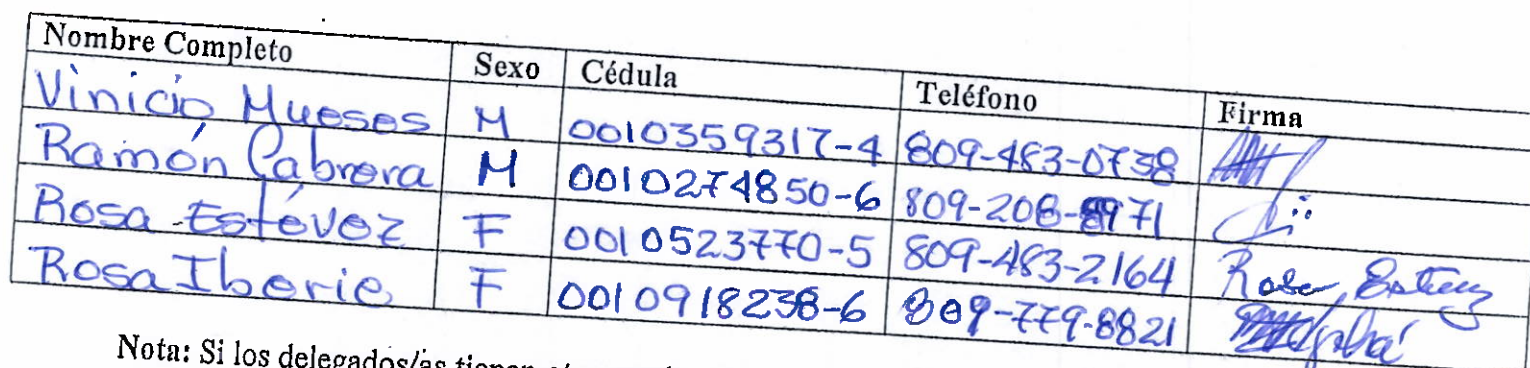 Nombre Completo Sexo Cédula Teléfono Firma
Vinicio Mueses M 0010359317-4 809-483-0738
Ramón Cabrera M 0010274850-6 809-208-8971
Rosa Estévez F 0010523770-5 809-483-2164 Rosa Estévez
Rosa Iberie F 0010918238-6 809-779-8821
Nota: Si los delegados/as tienen